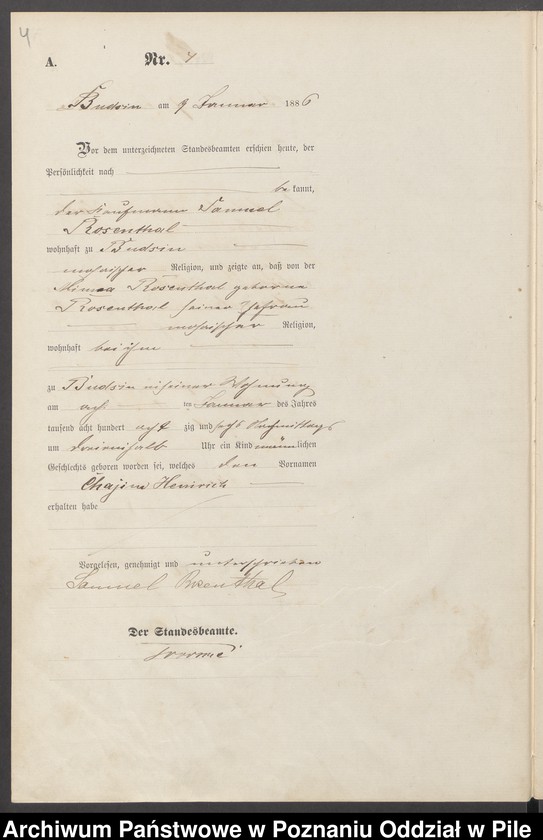 4
A. Nr. 4
Budsin am 9 Januar 1886
Vor dem unterzeichneten Standesbeamten erschien heute, der
Persönlichkeit nach
be kannt,
der Kaufmann Samuel
Rosenthal
wohnhaft zu Budsin
mosaischer Religion, und zeigte an, daß von der
Rosenthal geborne
Rosenthal seiner Ehefrau
mosaischer Religion,
wohnhaft bei ihm
zu Budsin in seiner Wohnung
am acht ten Januar des Jahres
tausend acht hundert acht zig und sechs Nachmittags
um dreieinhalb Uhr ein Kind männlichen
Geschlechts geboren worden sei, welches den Vornamen
Chajim Heinrich
erhalten habe
Vorgelesen, genehmigt und unterschrieben
Samuel Rosenthal
Der Standesbeamte.
Archiwum Państwowe w Poznaniu Oddział w Pile